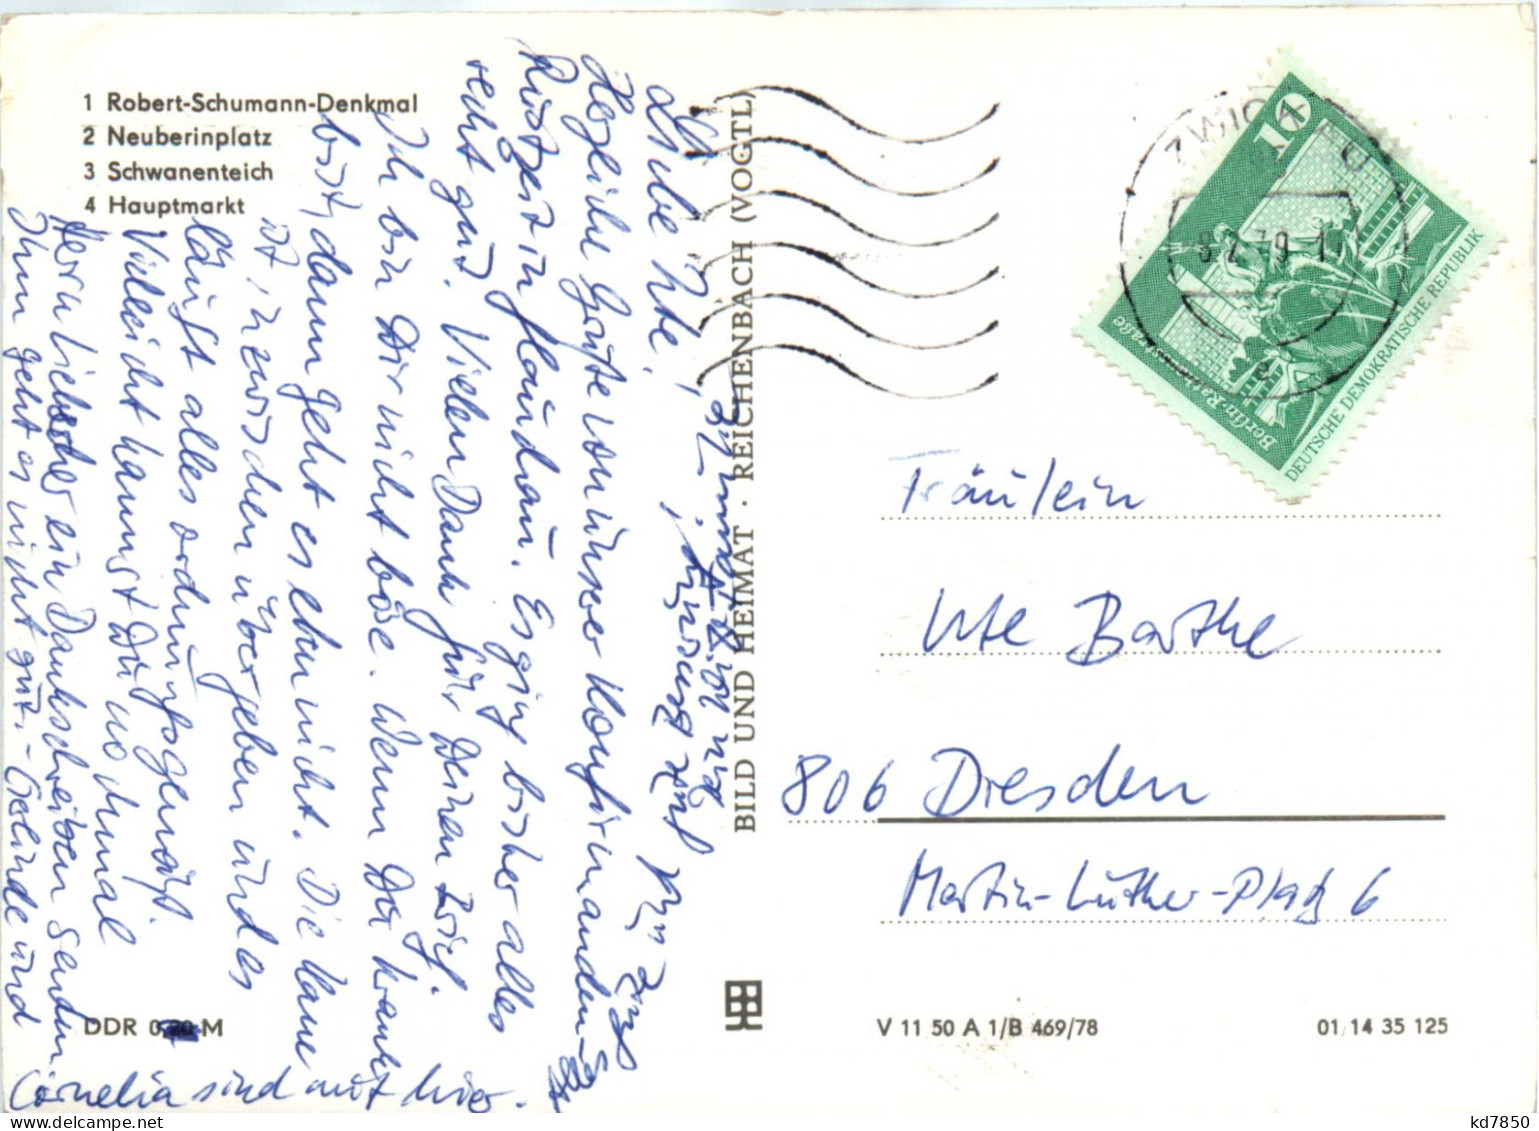 1 Robert-Schumann-Denkmal
2 Neuberinplatz
3 Schwanenteich
4 Hauptmarkt
Liebe Ute,
Herzliche Grüße von unserer Konfirmanden-
Rüstzeit in Planitz. Es ging bisher alles
recht gut. Vielen Dank für Deinen Brief.
Ich bin Dir nicht böse. Wenn Du krank
bist, dann geht es eben nicht. Die Kasse
ist inzwischen übergeben und es
läuft alles ordnungsgemäß.
Vielleicht kannst Du nochmal
Herrn Liebscher ein Dankschreiben senden.
Ihm geht es nicht gut. - Gerlinde und
Cornelia sind mit hier.
DDR 0,20 M
BILD UND HEIMAT · REICHENBACH (VOGTL)
ZWICKAU
8.2.79
10
Berlin
DEUTSCHE DEMOKRATISCHE REPUBLIK
Fräulein
Ute Barthe
806 Dresden
Martin-Luther-Platz 6
V 11 50 A 1/B 469/78
01 14 35 125
kd7850